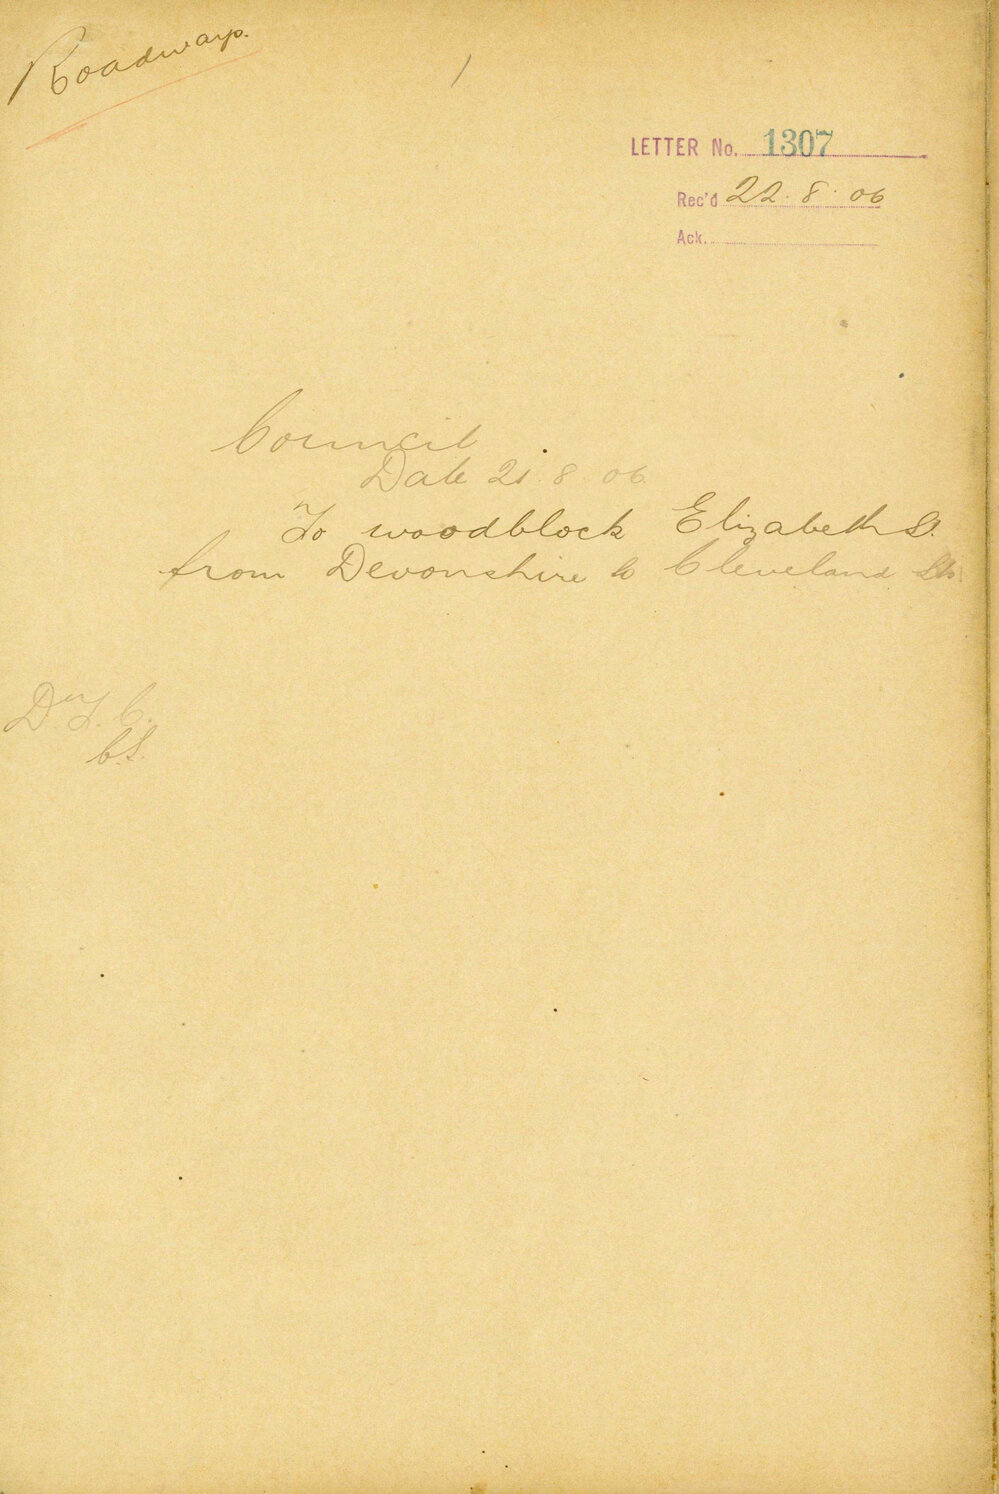 Roadways.
LETTER No. 1307
Rec'd 22. 8. 06
Ack.
Council
Date 21. 8. 06
To woodblock Elizabeth St.
from Devonshire to Cleveland Sts
C.S.